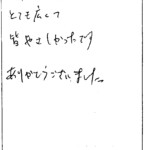 とても広くて
皆やさしかったです
ありがとうございました。